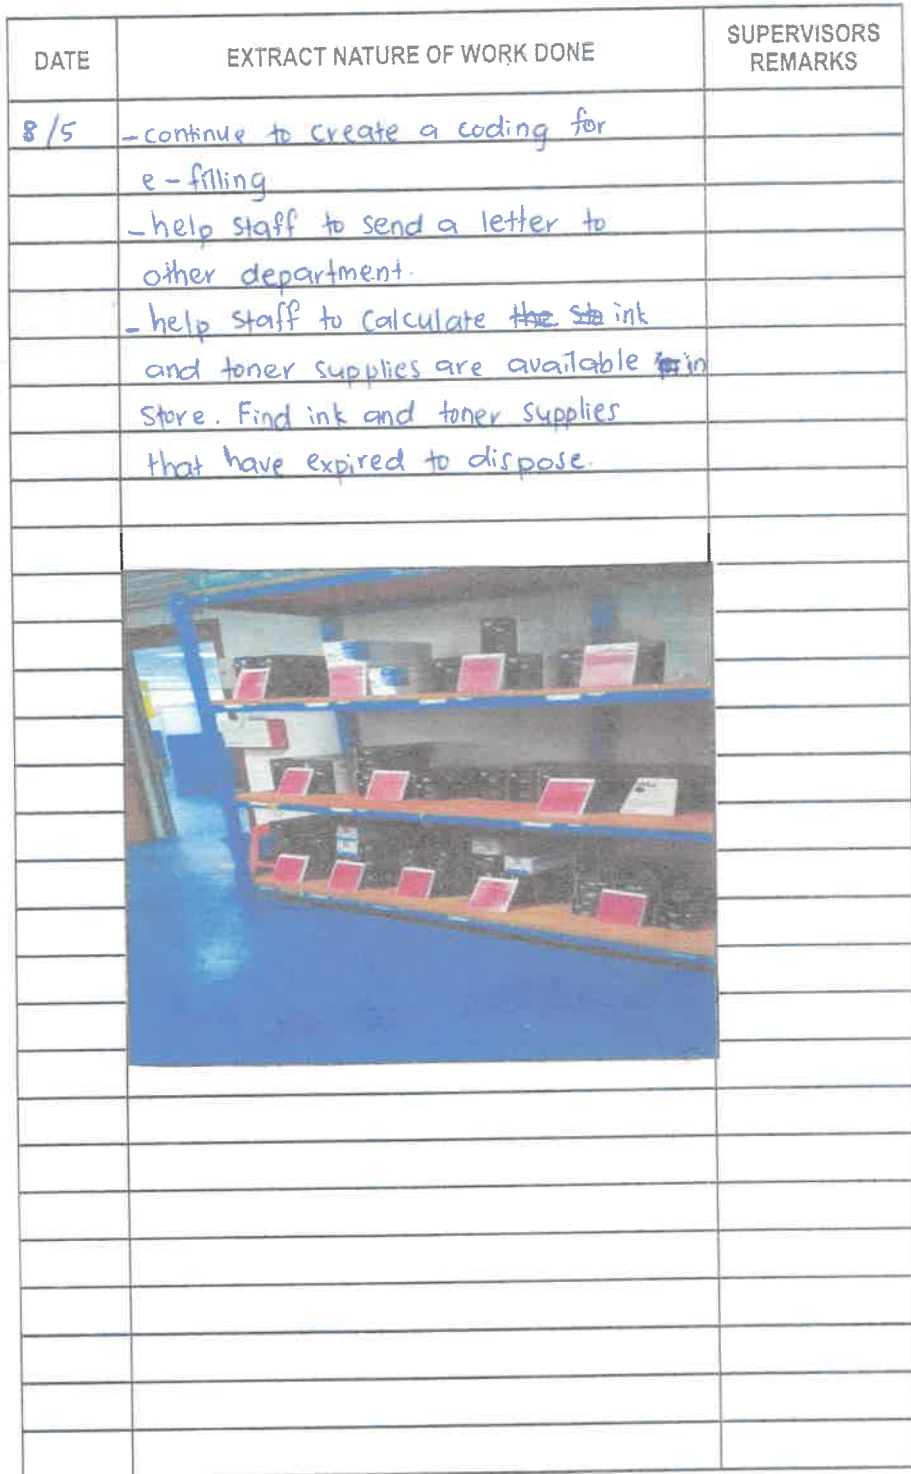 DATE
EXTRACT NATURE OF WORK DONE
SUPERVISORS
REMARKS
8/5
- continue to create a coding for
e - filling
- help staff to send a letter to
other department.
- help staff to calculate the sta ink
and toner supplies are available in
store. Find ink and toner supplies
that have expired to dispose.